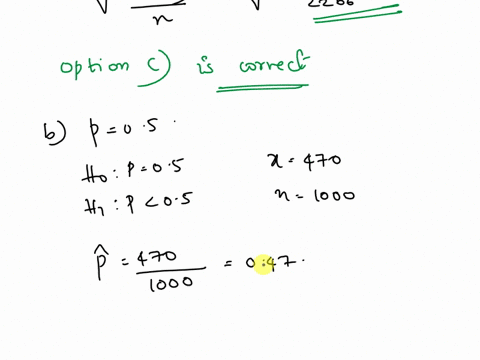 √ n √ 2266
option c) is correct
b) p = 0.5 .
H₀ : P = 0.5 x = 470
H₁ : P < 0.5 n = 1000
p̂ = 470/1000 = 0.47 .